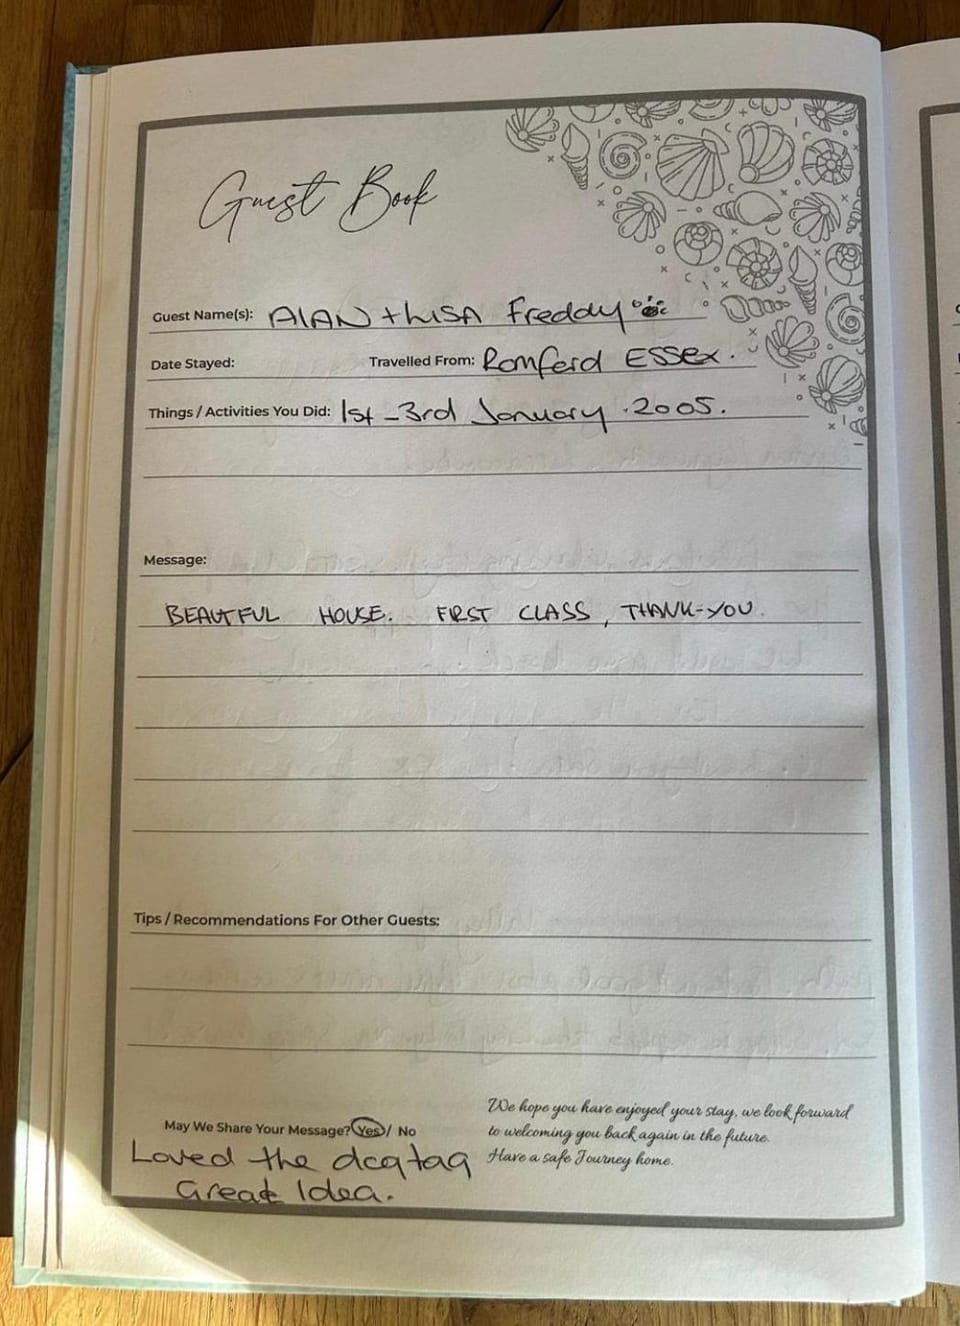 Guest Book
Guest Name(s): ALAN + LISA Freddy
Date Stayed: Travelled From: Romford ESSEX.
Things / Activities You Did: 1st - 3rd January . 2005.
Message:
BEAUTFUL HOUSE. FIRST CLASS, THANK-YOU.
Tips / Recommendations For Other Guests:
We hope you have enjoyed your stay, we look forward
to welcoming you back again in the future.
Have a safe Journey home.
May We Share Your Message? Yes / No
Loved the dogtag
Great Idea.